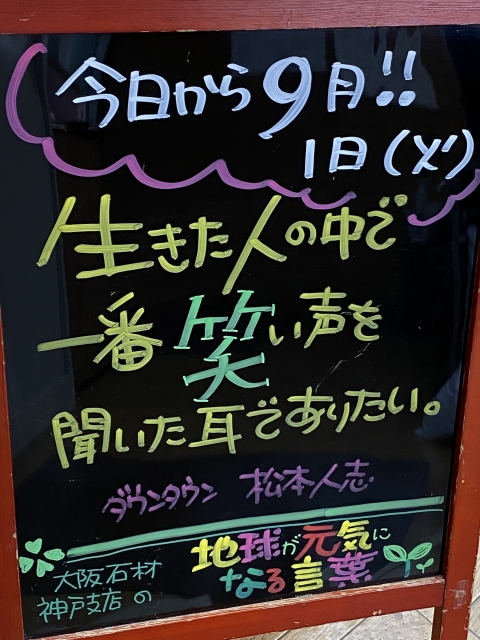 今日から9月!!
1日(火)
生きた人の中で
一番笑い声を
聞いた耳でありたい。
ダウンタウン 松本人志
大阪石材
神戸支店の
地球が元気に
なる言葉